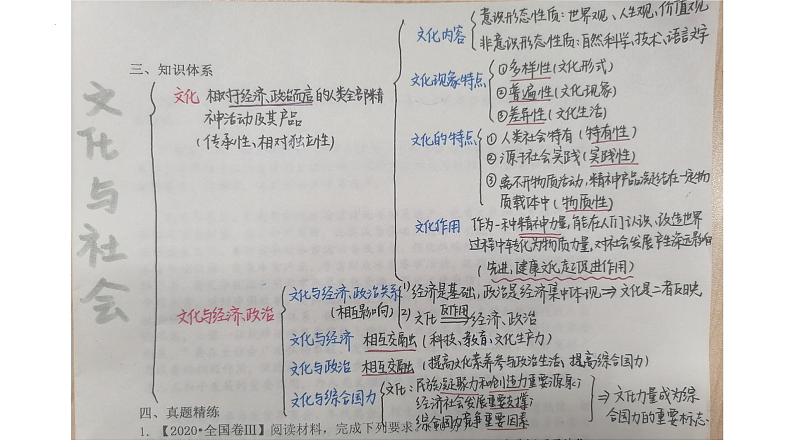 三、知识体系
文化与社会
文化 相对于经济、政治而言的人类全部精
神活动及其产品
(传承性、相对独立性)
文化内容
意识形态性质:世界观、人生观、价值观
非意识形态性质:自然科学、技术、语言文字
文化现象特点
①多样性(文化形式)
②普遍性(文化现象)
③差异性(文化生活)
文化的特点
①人类社会特有(特有性)
②源于社会实践(实践性)
③离不开物质活动,精神产品凝结在一定物
质载体中(物质性)
文化作用 作为一种精神力量,能在人们认识、改造世界
过程中转化为物质力量,对社会发展产生深远影响
(先进、健康文化起促进作用)
文化与经济、政治
文化与经济、政治关系
(相互影响)
1)经济是基础,政治是经济集中体现⇒文化是二者反映
2)文化 反作用 经济、政治
文化与经济 相互交融(科技、教育、文化生产力)
文化与政治 相互交融(提高文化素养参与政治生活,提高综合国力)
文化与综合国力
文化:民族凝聚力和创造力重要源泉;
经济社会发展重要支撑;
综合国力竞争重要因素
⇒文化力量成为综
合国力的重要标志.
四、真题精练
1.【2020•全国卷Ⅲ】阅读材料,完成下列要求